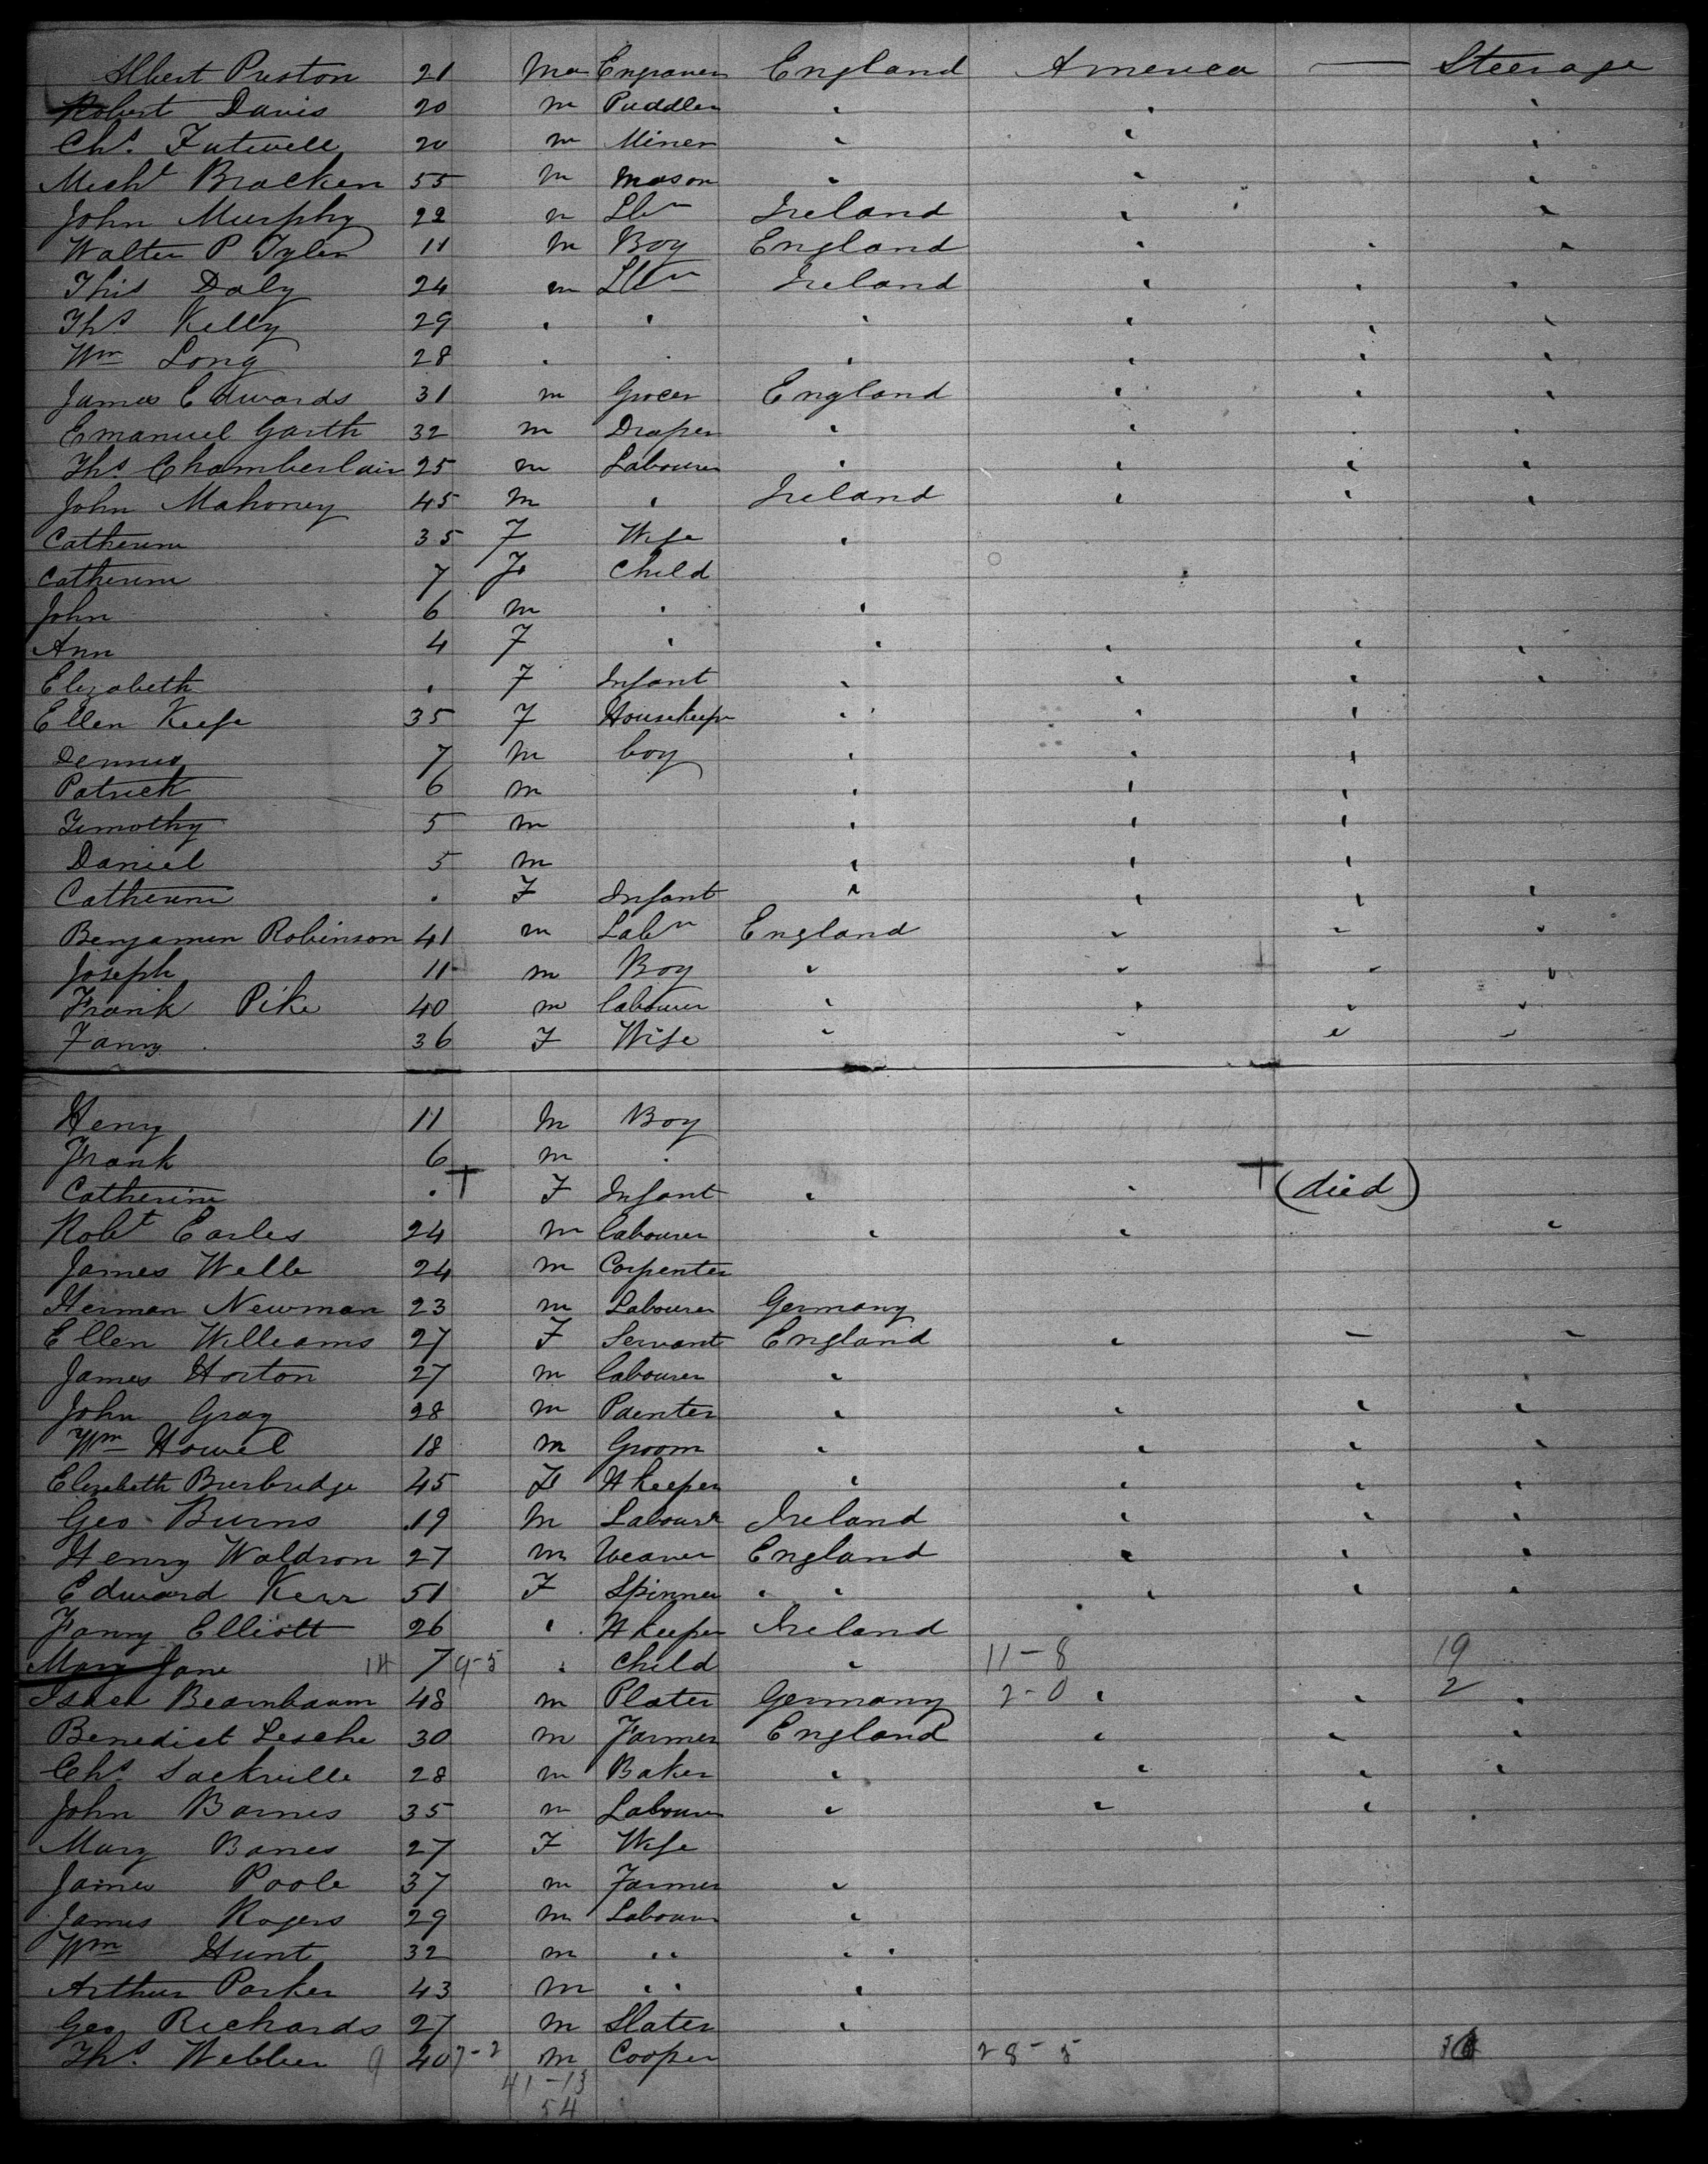 Albert Preston 21 Ma Engraver England America — Steerage
Robert Davis 20 m Puddler " " "
Chs. Futwell 20 m Miner " " "
Micht Bracken 55 m Mason " " "
John Murphy 22 m Lbr Ireland " "
Walter P Tyler 11 m Boy England " " "
Thos Daly 24 m Lbr Ireland " " "
Ths Kelly 29 " " " " " "
Wm Long 28 " " " " " "
James Edwards 31 m Grocer England " " "
Emanuel Garth 32 m Draper " " " "
Ths Chamberlain 25 m Labourer " " " "
John Mahoney 45 m " Ireland " " "
Catherine 35 F Wife "
Catherine 7 F Child
John 6 m " "
Ann 4 F " " " " "
Elizabeth " F Infant " " " "
Ellen Keefe 35 F Housekeepr " " "
Dennis 7 m boy " " "
Patrick 6 m " " "
Timothy 5 m " " "
Daniel 5 m " " "
Catherine " F Infant " " " "
Benjamin Robinson 41 m Labr England " " "
Joseph 11 m Boy " " " "
Frank Pike 40 m labourer " " " "
Fanny 36 F Wife " " " "
Henry 11 m Boy
Frank 6 m "
Catherine " + F Infant " " + (died)
Robt Earles 24 m labourer " " "
James Wells 24 m Carpenter
Herman Newman 23 m Labourer Germany
Ellen Williams 27 F Servant England " — "
James Horton 27 m labourer "
John Gray 28 m Painter " " " "
Wm Howel 18 m Groom " " " "
Elizabeth Burbridge 45 F H keeper " " " "
Geo Burns 19 m Labourer Ireland " " "
Henry Waldron 27 m Weaver England " " "
Edward Kerr 51 F Spinner " " " " "
Fanny Elliott 26 " H keeper Ireland
Mary Jane 14 7 9-5 " Child " 11-8 19
Isaac Bearnbaum 48 m Plater Germany 2-0 " " 2 "
Benedict Lesche 30 m Farmer England " " "
Chs. Sackville 28 m Baker " " " "
John Barnes 35 m Labourer " " " "
Mary Barnes 27 F Wife
James Poole 37 m Farmer "
James Rogers 29 m Labourer "
Wm Hunt 32 m " " " "
Arthur Parker 43 m " " "
Geo Richards 27 m Slater "
Ths. Webber 9 40 7-2 m Cooper 28-5
41-13
54